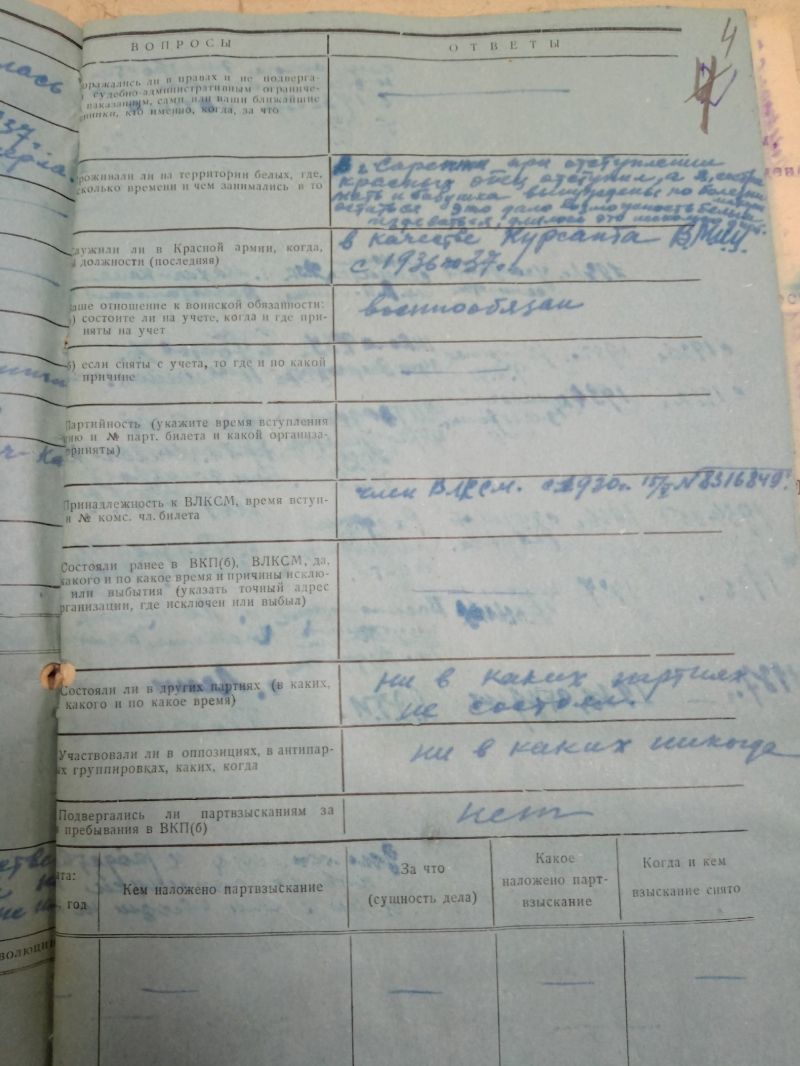 4
ВОПРОСЫ ОТВЕТЫ
оражались ли в правах и не подверга-
судебно-административным ограниче-
наказаниям, сами или ваши ближайшие
енники, кто именно, когда, за что
—
роживали ли на территории белых, где,
сколько времени и чем занимались в то
В г. Сарепта при отступлении
красных отец отступил, а я, сестра
мать и бабушка вынуждены по болезни
остаться это дало возможность белым
лужили ли в Красной армии, когда,
должности (последняя)
в качестве Курсанта
с 1936 по 37 г.
аше отношение к воинской обязанности:
) состоите ли на учете, когда и где при-
няты на учет
военнообязан
б) если сняты с учета, то где и по какой
причине
—
Партийность (укажите время вступления
тию и № парт. билета и какой организа-
приняты)
Принадлежность к ВЛКСМ, время вступ-
и № комс. чл. билета
член ВЛКСМ. с 1930 г. № 8316849
Состояли ранее в ВКП(б), ВЛКСМ, да,
какого и по какое время и причины исклю-
или выбытия (указать точный адрес
рганизации, где исключен или выбыл)
—
Состояли ли в других партиях (в каких,
какого и по какое время)
ни в каких партиях
не состоял.
Участвовали ли в оппозициях, в антипар-
ых группировках, каких, когда
ни в каких никогда
Подвергались ли партвзысканиям за
пребывания в ВКП(б)
нет
ата:
год
Кем наложено партвзыскание
За что
(сущность дела)
Какое
наложено парт-
взыскание
Когда и кем
взыскание снято
— — — —